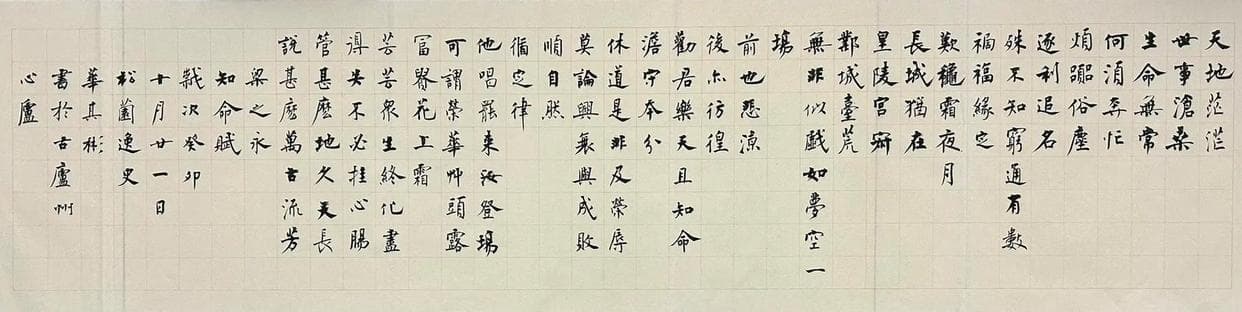 天地茫茫
世事滄桑
生命無常
何須奔忙
煩囂俗塵
逐利追名
殊不知窮通有數
禍福緣定
歎穐霜夜月
長城猶在
皇陵宮寂
鄴城臺荒
無非似戲如夢空一
場
前也悲涼
後亦彷徨
勸君樂天且知命
澹守本分
休道是非及榮辱
莫論興衰與成敗
順自然
循定律
他唱罷來汝登場
可謂榮華艸頭露
富貴花上霜
芸芸眾生終化盡
得失不必挂心腸
管甚麼地久天長
說甚麼萬古流芳
梁之永
知命賦
歲次癸卯
十月廿一日
松蘭逸史
華其彬
書於古廬州
心廬